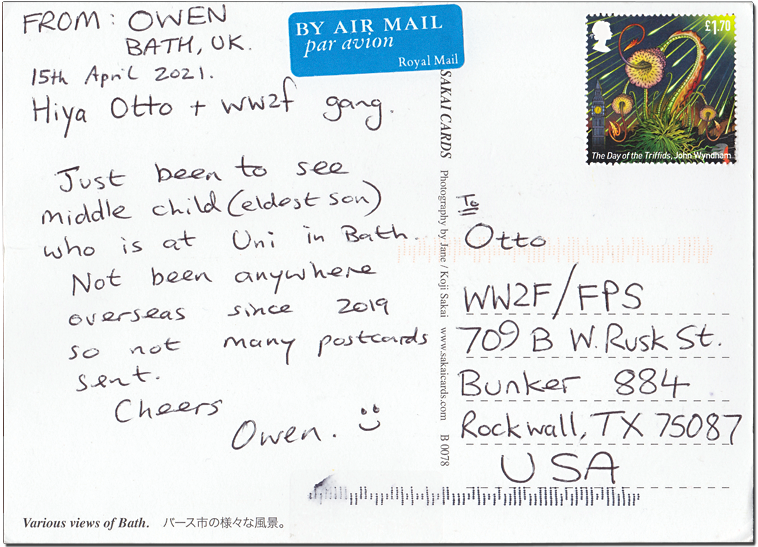 FROM: OWEN
BATH, UK.
15th April 2021.
Hiya Otto + WW2f gang.
Just been to see
middle child (eldest son)
who is at Uni in Bath.
Not been anywhere
overseas since 2019
so not many postcards
sent.
Cheers
Owen.
Various views of Bath. バース市の様々な風景。
BY AIR MAIL
par avion
Royal Mail
SAKAI CARDS Photography by Jane / Koji Sakai www.sakaicards.com B 0078
£1.70
The Day of the Triffids, John Wyndham
To
Otto
WW2F/FPS
709 B W. Rusk St.
Bunker 884
Rockwall, TX 75087
USA